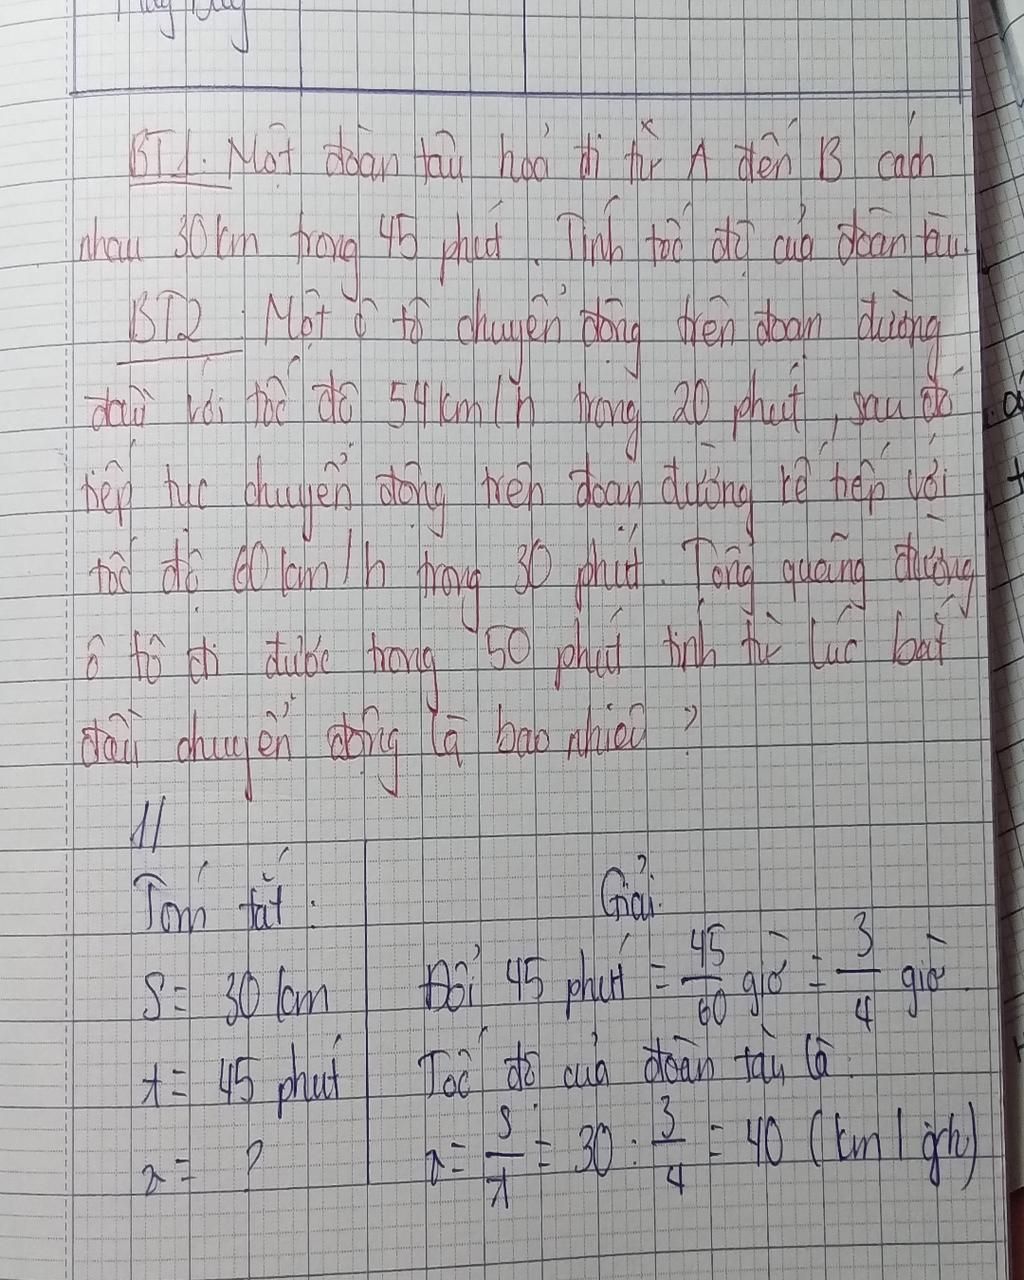 BT1. Một đoàn tàu hoả đi từ A đến B cách
nhau 30km trong 45 phút. Tính tốc độ của đoàn tàu.
BT2: Một ô tô chuyển động trên đoạn đường
đầu với tốc độ 54km/h trong 20 phút, sau đó
tiếp tục chuyển động trên đoạn đường kế tiếp với
tốc độ 60km/h trong 30 phút. Tổng quãng đường
ô tô đi được trong 50 phút tính từ lúc bắt
đầu chuyển động là bao nhiêu?
1/
Tóm tắt: Giải:
S = 30 km Đổi 45 phút = 45/60 giờ = 3/4 giờ.
t = 45 phút Tốc độ của đoàn tàu là:
v = ? v = s/t = 30 : 3/4 = 40 (km/giờ)